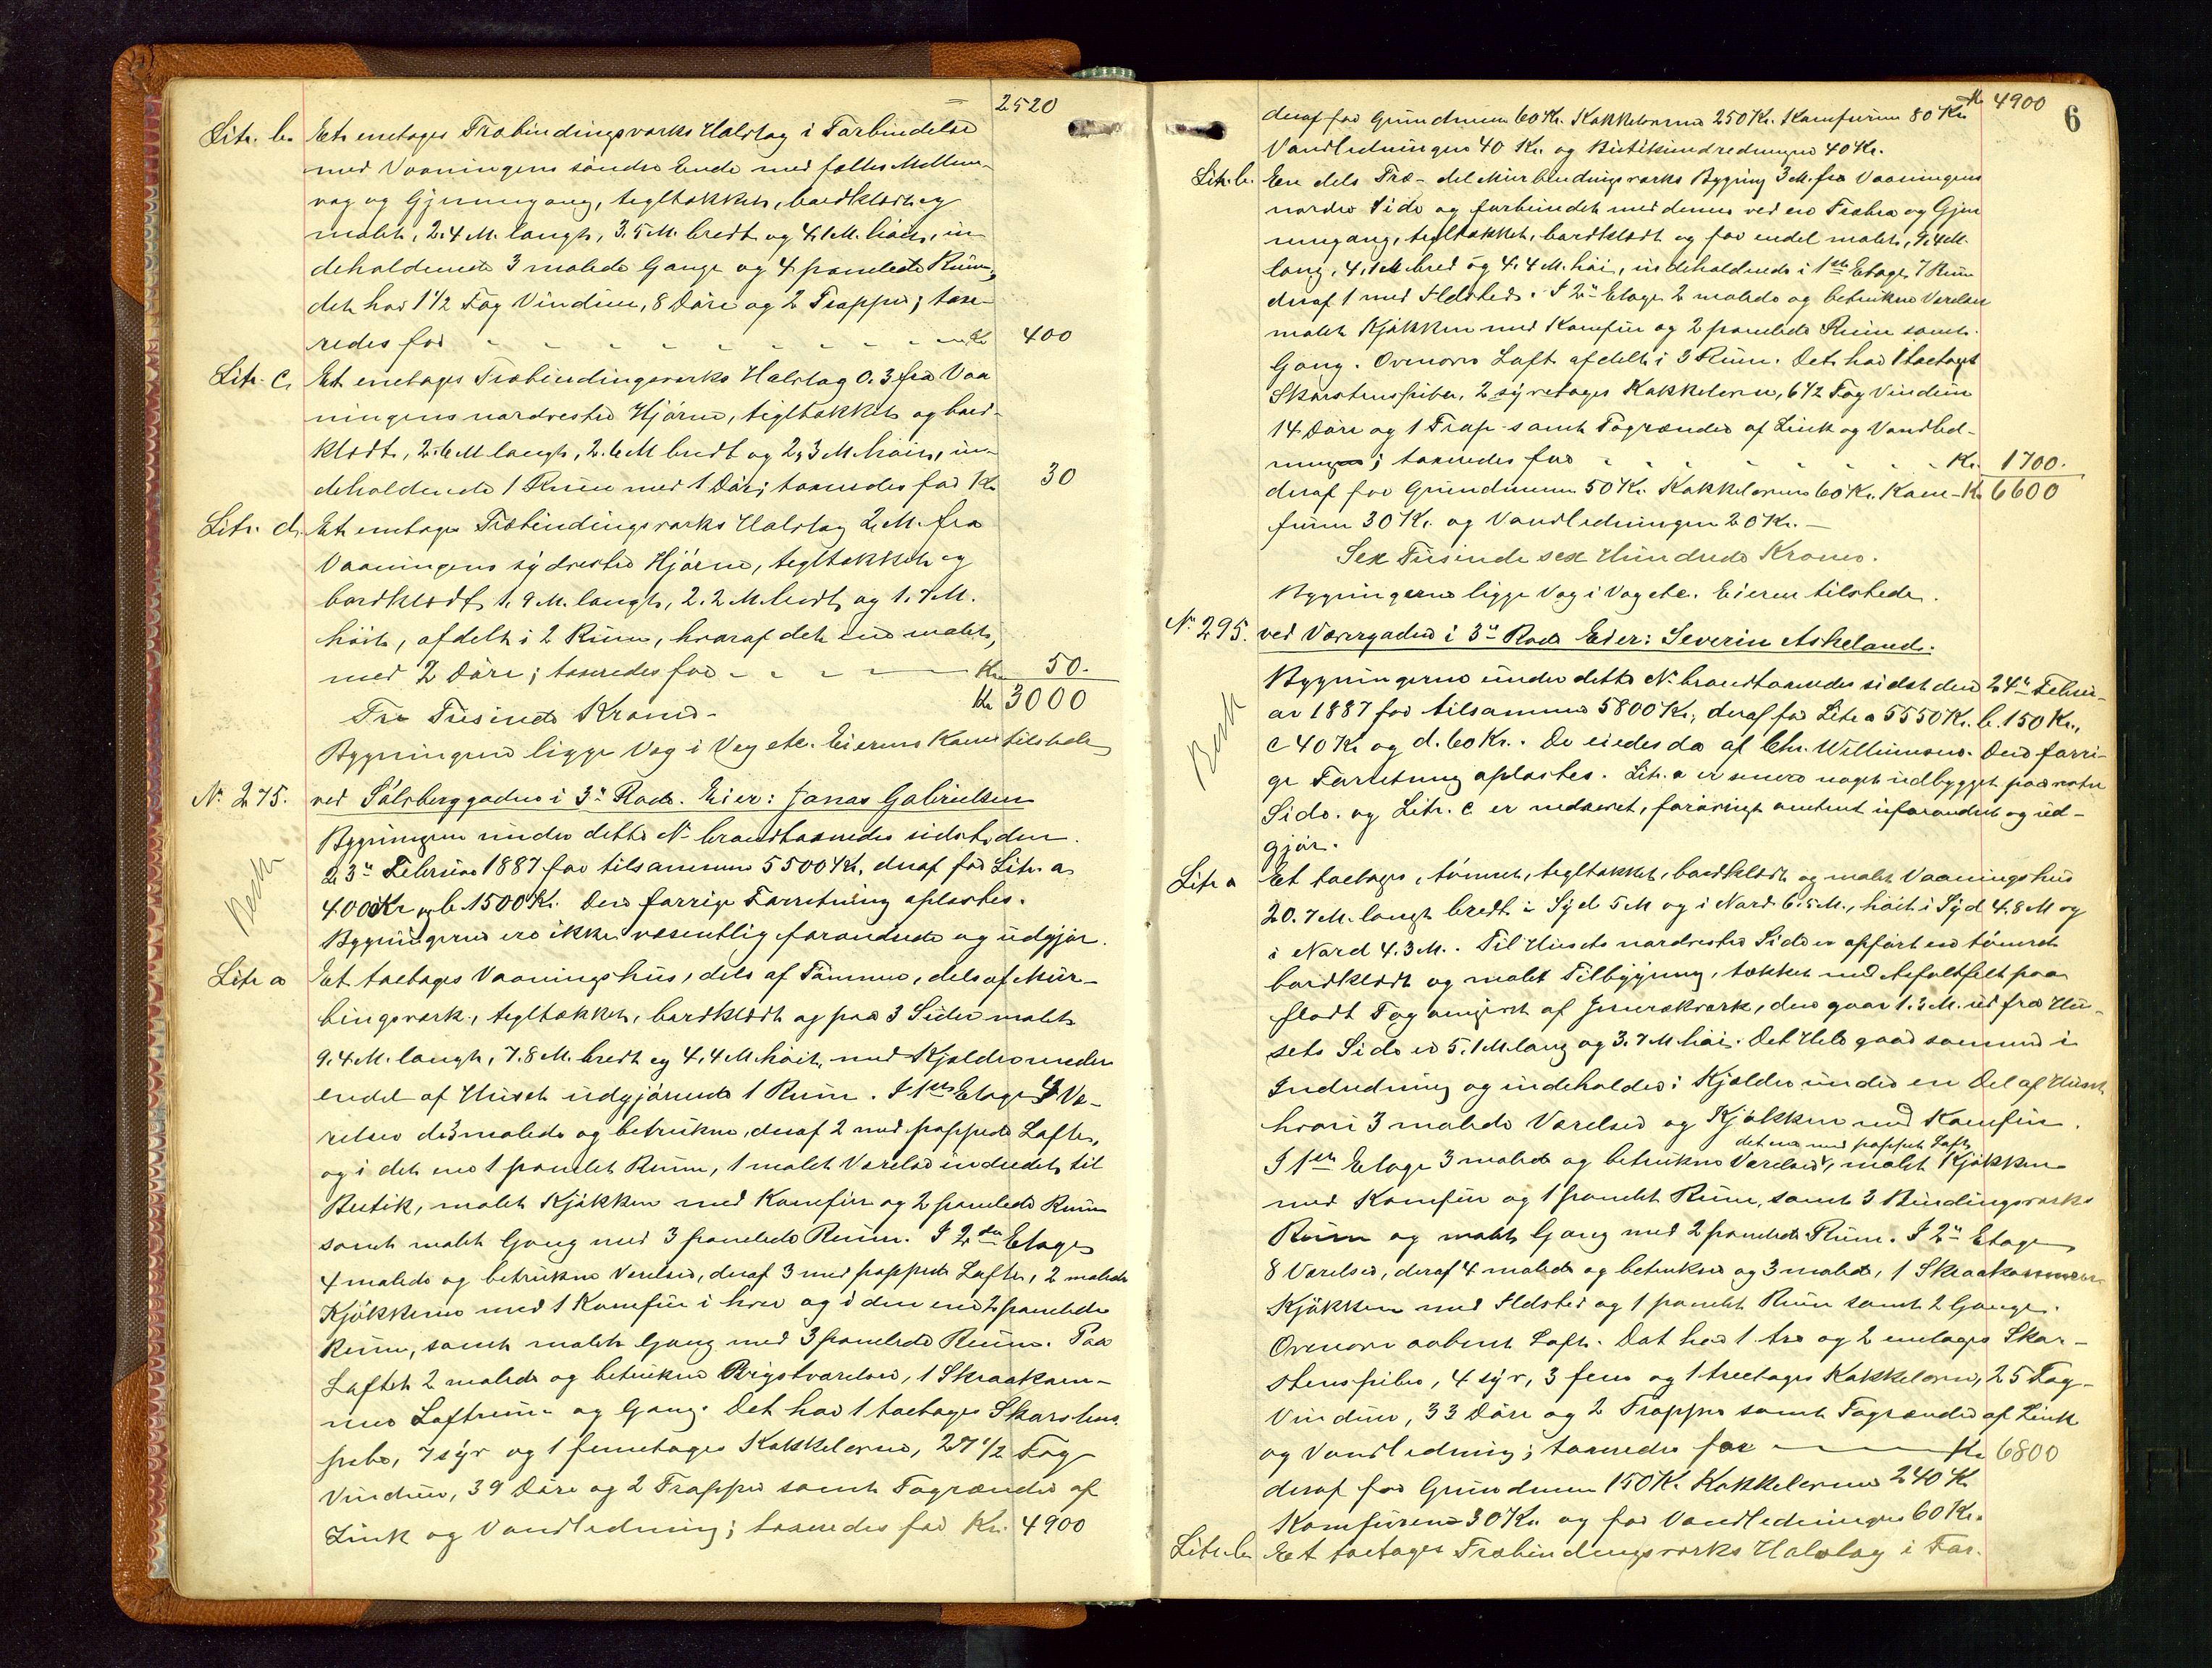 2520
Litr. b. Et enetages Træbindingsværks Halvtag i Forbindelse
med Vaaningens søndre Ende med fælles Mellem-
væg og Gjennemgang, tegltækket, bordklædt og
malet, 2.4 M. langt, 3.5 M. bredt og 4.1 M. høit, in-
deholdende 3 malede Gange og 4 panelede Rum;
det har 1 1/2 Fag Vinduer, 8 Døre og 2 Trapper; taxe-
redes for - - - - - - - - - - Kr 400
Litr. c. Et enetages Træbindingsværks Halvtag 0.3 fra Vaa
ningens nordvestre Hjørne, tegltækket og bord-
klædt, 2.6 M langt, 2.6 M bredt og 2,3 M. høit, in-
deholdende 1 Rum med 1 Dør; taxeredes for Kr 30
Litr. d. Et enetages Træbindingsværks Halvtag 2 M. fra
Vaaningens sydvestre Hjørne, tegltækket og
bordklædt, 1.9 M. langt, 2.2 M. bredt og 1.7 M.
høit, afdelt i 2 Rum, hvoraf det ene malet,
med 2 Døre; taxeredes for - - - Kr 50.
Tre Tusinde Kroner - Kr 3000
Bygningerne ligge Væg i Væg etc. Eierens Kone tilstede
No 275. ved Sølvberggaden i 3die Rode. Eier: Jonas Gabrielsen
Bygningerne under dette No brandtaxeredes sidst den
23de Februar 1887 for tilsammen 5500 Kr, deraf for Litr. a
4000 Kr og b. 1500 Kr. Den forrige Forretning oplæstes.
Besk
Bygningerne ere ikke væsentlig forandrede og udgjør.
Litr a Et toetages Vaaningshus, dels af Tømmer, dels af Mur-
bingsværk, tegltækket, bordklædt og paa 3 Sider malet
9.4 M. langt, 7.8 M. bredt og 4,4 M. høit, med Kjælder under
endel af Huset udgjørende 1 Rum. I 1ste Etage 4 Væ-
relser de 3 malede og betrukne, deraf 2 med pappede Lofter,
og i det ene 1 panelet Rum, 1 malet Værelse indredet til
Butik, malet Kjøkken med Komfur og 2 panelede Rum
samt malet Gang med 3 panelede Rum. I 2den Etage
4 malede og betrukne Værelser, deraf 3 med pappede Lofter, 2 malede
Kjøkkener med 1 Komfur i hver og i den ene 2 panelede
Rum, samt malet Gang med 3 panelede Rum. Paa
Loftet 2 malede og betrukne Qvistværelser, 1 Skraakam-
mer Loftrum og Gang. Det har 1 toetages Skorstens
pibe, 7 syv og 1 femetages Kakkelovne, 27 1/2 Fag
Vinduer, 39 Døre og 2 Trapper samt Tagrender af
Zink og Vandledning; taxeredes for Kr. 4900
Kr 4900
6
deraf for Grundmuren 60 Kr. Kakkelovnene 250 Kr. Komfuren 80 Kr
Vandledningen 40 Kr. og Butikindredningen 40 Kr.
Litr. b. En dels Træ- dels Murbindingsværks Bygning 3 M. fra Vaaningens
nordre Side og forbundet med denne ved en Træbro og Gjen
nemgang, tegltækket, bordklædt og for endel malet, 9,4 M.
lang, 4,1 M bred og 4,4 M. høi, indeholdende i 1ste Etage 7 Rum
deraf 1 med Ildsted. I 2den Etage 2 malede og betrukne Værelser
malet Kjøkken med Komfur og 2 panelede Rum samt
Gang. Ovenover Loft afdelt i 3 Rum. Det har 1 toetages
Skorstenspiber, 2 syvetages Kakkelovne, 6 1/2 Fag Vinduer
14 Døre og 1 Trap samt Tagrender af Zink og Vandled-
ningen; taxeredes for - - - - - - Kr. 1700.
deraf for Grundmuren 50 Kr. Kakkelovnene 60 Kr. Kom- Kr 6600
furen 30 Kr. og Vandledningen 20 Kr. -
Sex Tusinde sex Hundrede Kroner.
Bygningerne ligge Væg i Væg etc. Eieren tilstede.
No 295. ved Værvgaden i 3die Rode Eier: Severin Askeland.
Bygningerne under dette No brandtaxeredes sidst den 24de Febru-
ar 1887 for tilsammen 5800 Kr., deraf for Litr a 5550 Kr. b. 150 Kr.,
Besk
c 40 Kr og d. 60 Kr. De eiedes da af Chr. Wellumsen. Den forri-
ge Forretning oplæstes. Litr. a er senere noget udbygget paa vestre
Side. og Litr. c er nedrevet, forøvrigt omtrent uforandret og ud-
gjør.
Litr a Et toetages, tømret, tegltækket, bordklædt og malet Vaaningshus
20.7 M. langt bredt i Syd 5 M og i Nord 6.5 M., høit i Syd 4.8 M og
i Nord 4.3 M. Til Husets nordvestre Side er opført en tømret
bordklædt og malet Tilbygning, tækket med Asfaltfilt paa
fladt Tag omgivet af , den gaar 1.3 M. ud fra Hu-
sets Side er 5.1 M lang og 3.7 M høi. Det Hele gaar sammen i
Indredning og indeholder: Kjælder under en Del af Huset
hvori 3 malede Værelser og Kjøkken med Komfur.
I 1ste Etage 3 malede og betrukne Værelser, det ene med pappet Loft, malet Kjøkken
med Komfur og 1 panelet Rum, samt 3 Bindingsværks
Rum og malet Gang med 2 panelede Rum. I 2den Etage
8 Værelser, deraf 4 malede og betrukne og 3 malede, 1 Skraakammer
Kjøkken med Ildsted og 1 panelet Rum samt 2 Gange.
Ovenover aabent Loft. Det har 1 tre og 2 enetages Skor-
stenspiber, 4 syv, 3 fem og 1 treetages Kakkelovne, 25 Fag
Vinduer, 33 Døre og 2 Trapper samt Tagrender af Zink
og Vandledning; taxeredes for - - - Kr 6800
deraf for Grundmuren 150 Kr. Kakkelovnene 240 Kr
Komfurene 30 Kr. og for Vandledningen 60 Kr.
Litr. b Et toetages Træbindingsværks Halvtag i For-